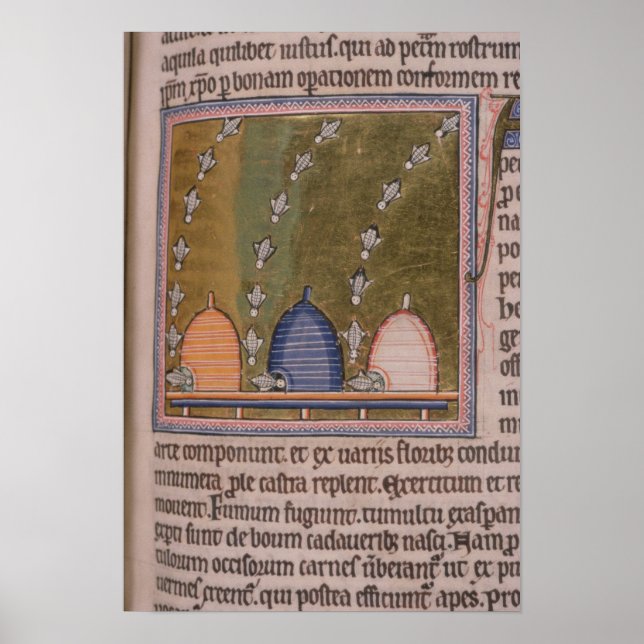 aquila quilibet iustus. qui ad petm rostrum
xpm xpo p bonam opationem conformem re
pe
na
po
pe
be
ge
offi
m
arte componunt. et ex uariis floribz condiu
innumera ple castra replent. Exercitum et re
mouent. Fumum fugiunt. tumultu exaspan
expti sunt de boum cadaueribz nasci. Nam p
uitulorum occisorum carnes uberant ut ex pu
uermes creent. qui postea efficiunt apes. Pro